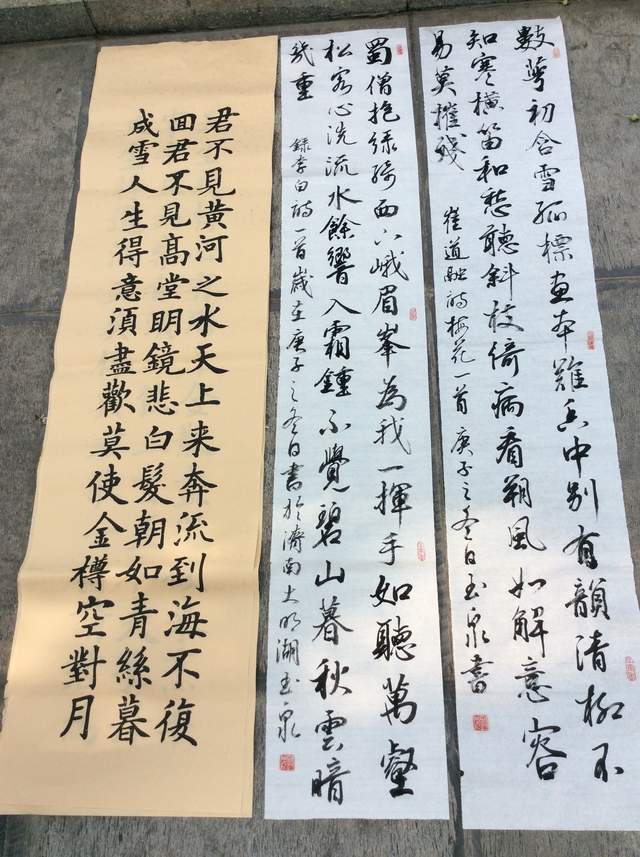 數萼初含雪孤標畫本難香中別有韻清极不
知寒橫笛和愁聽斜枝倚病看朔風如解意容
易莫摧殘 崔道融的梅花一首庚子之冬日玉泉書
蜀僧抱綠綺西下峨眉峯為我一揮手如聽萬壑
松客心洗流水餘響入霜鍾不覺碧山暮秋雲暗
幾重 錄李白的一首歲在庚子之冬日書於濟南大明湖玉泉
君不見黃河之水天上来奔流到海不復
回君不見髙堂明鏡悲白髮朝如青絲暮
成雪人生得意須盡歡莫使金樽空對月